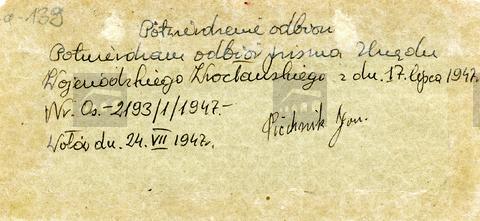 a-139
Potwierdzenie odbioru
Potwierdzam odbiór pisma Urzędu
Wojewódzkiego Wrocławskiego z dn. 17. lipca 1947.
Nr. Os.-2193/1/1947.-
Wołów dn. 24. VII 1947r.
Piechnik Jan.